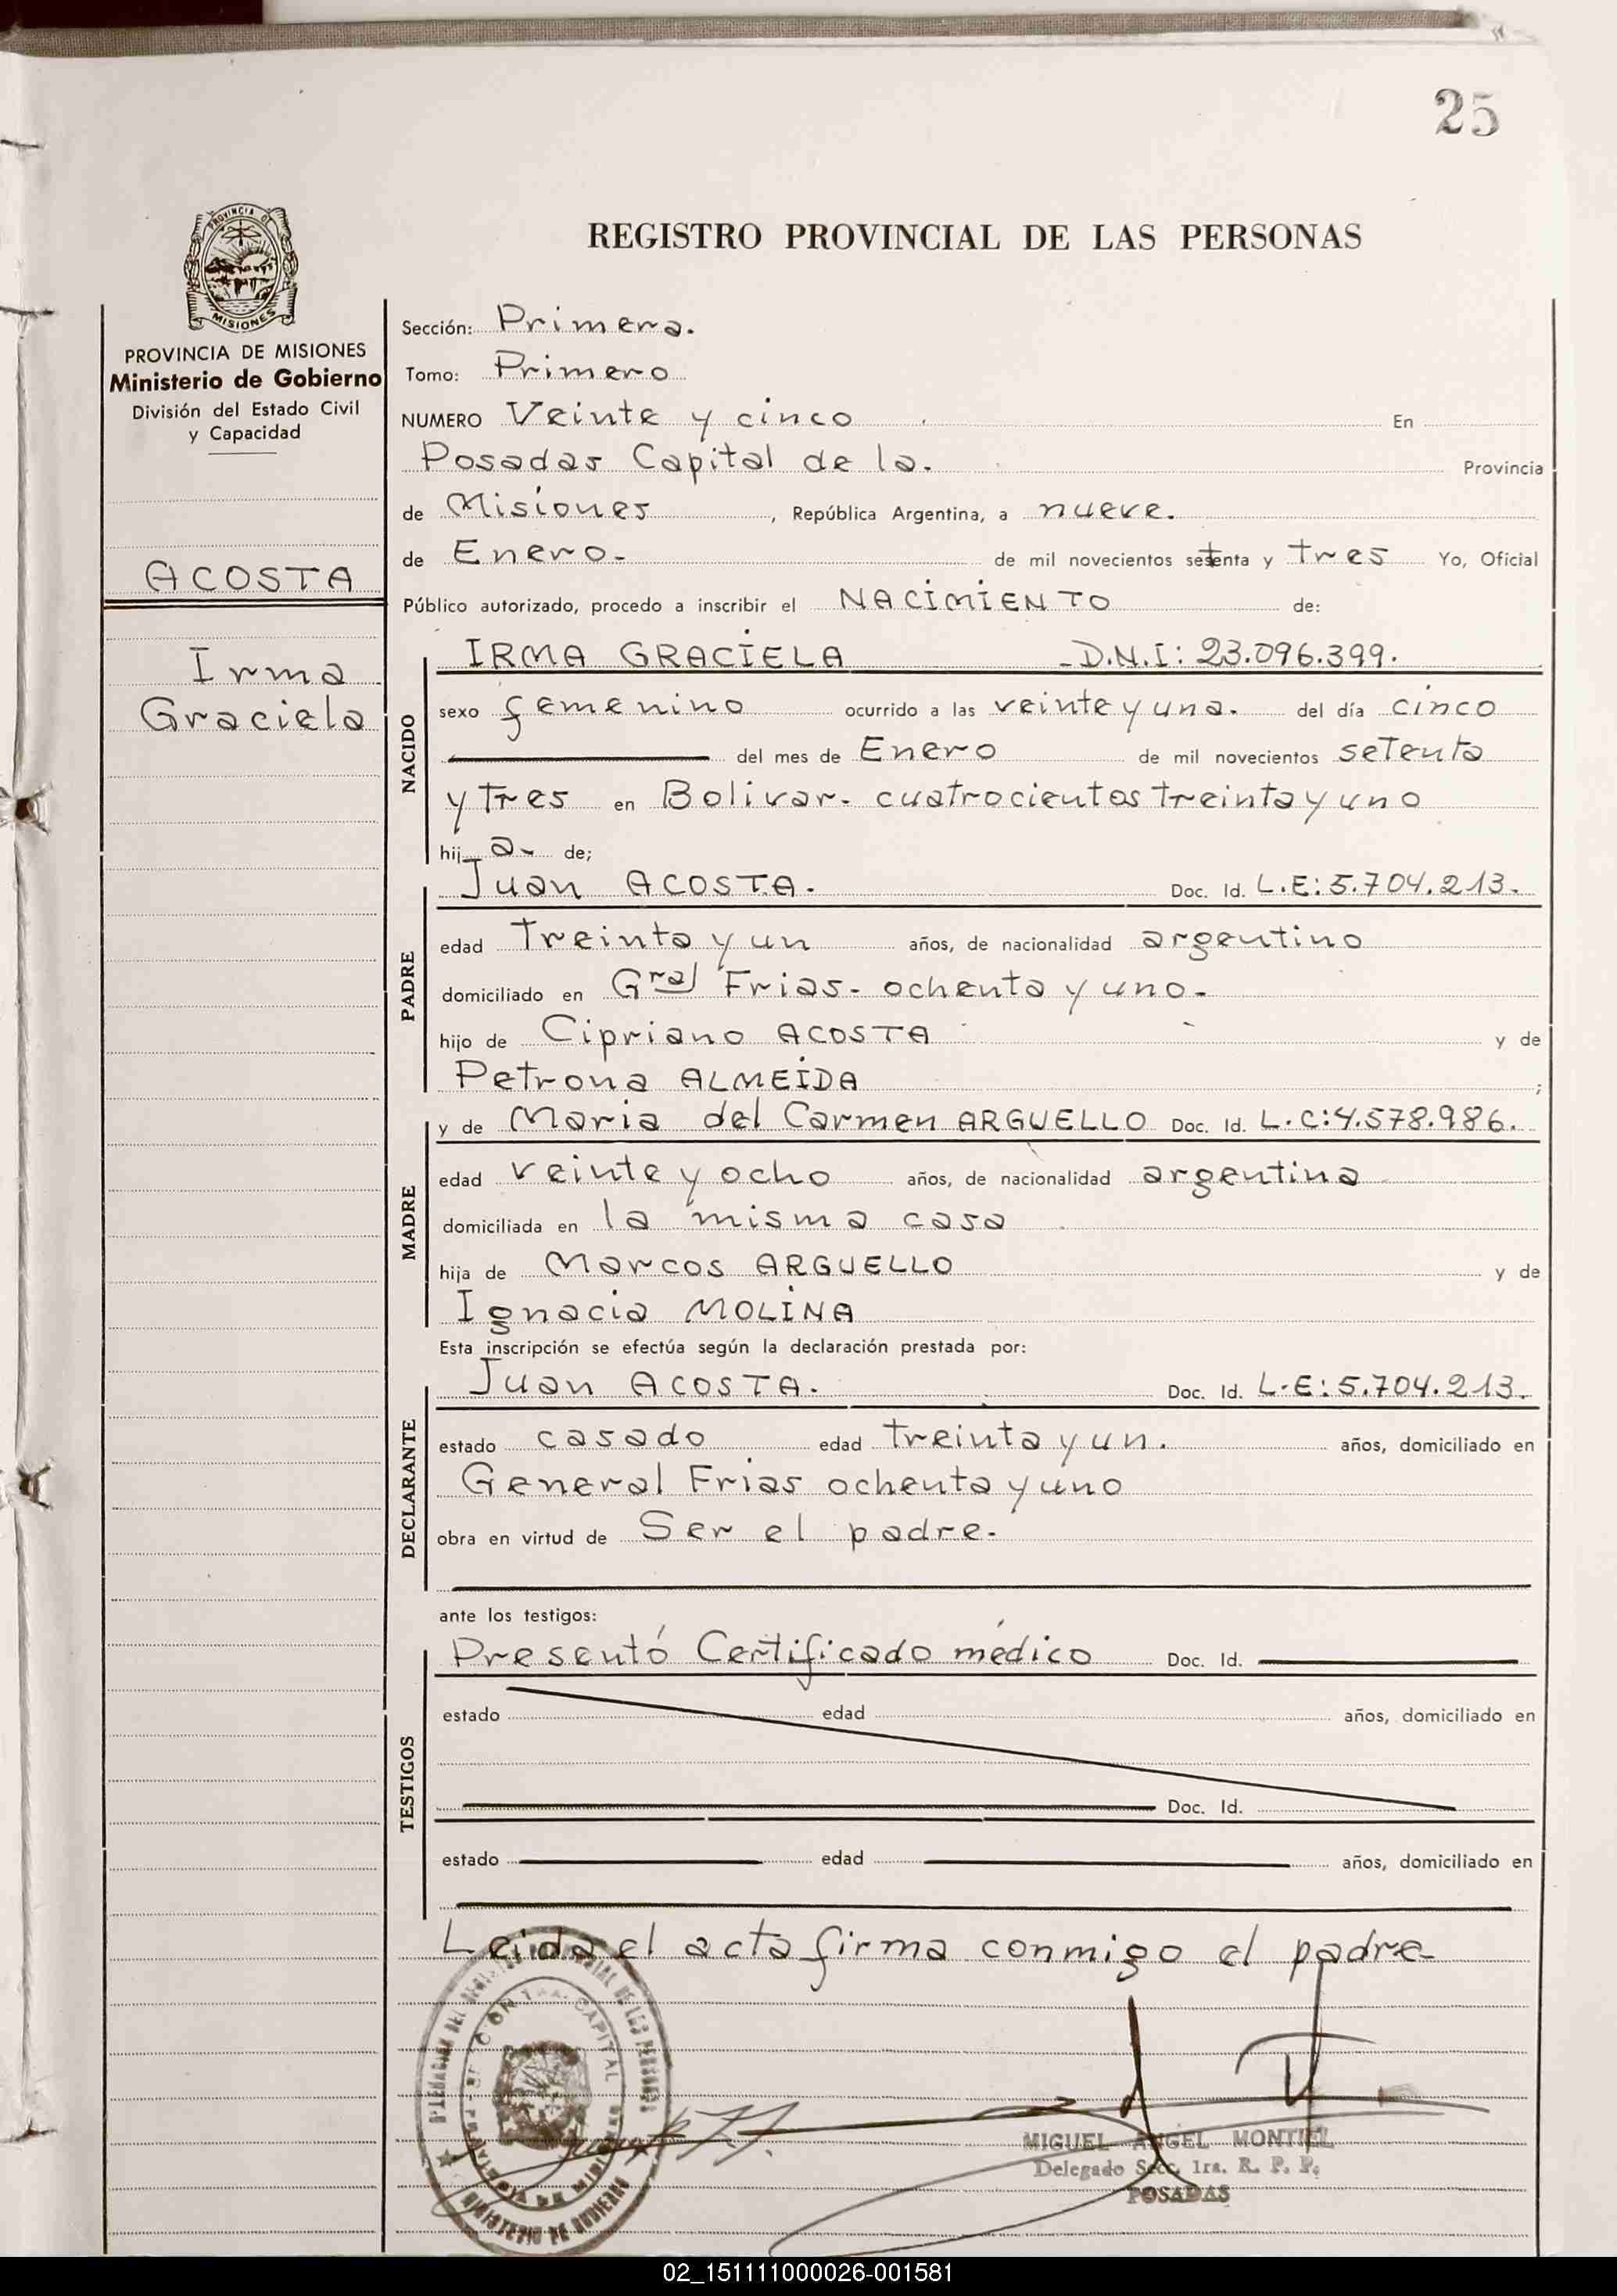 25
PROVINCIA DE
MISIONES
REGISTRO PROVINCIAL DE LAS PERSONAS
PROVINCIA DE MISIONES
Ministerio de Gobierno
División del Estado Civil
y Capacidad
ACOSTA
Irma
Graciela
Sección: Primera.
Tomo: Primero
NUMERO Veinte y cinco En
Posadas Capital de la. Provincia
de Misiones, República Argentina, a nueve.
de Enero- de mil novecientos setenta y tres Yo, Oficial
Público autorizado, procedo a inscribir el NACIMIENTO de:
NACIDO
IRMA GRACIELA -D.N.I: 23.096.399.
sexo femenino ocurrido a las veinte y una. del día cinco
del mes de Enero de mil novecientos setenta
y tres en Bolivar- cuatrocientos treinta y uno
hij a- de;
PADRE
Juan ACOSTA. Doc. Id. L.E: 5.704.213.
edad Treinta y un años, de nacionalidad argentino
domiciliado en Gral Frias- ochenta y uno-
hijo de Cipriano ACOSTA y de
Petrona ALMEIDA ;
MADRE
y de Maria del Carmen ARGUELLO Doc. Id. L.C:4.578.986.
edad veinte y ocho años, de nacionalidad argentina
domiciliada en la misma casa
hija de Marcos ARGUELLO y de
Ignacia MOLINA
Esta inscripción se efectúa según la declaración prestada por:
DECLARANTE
Juan ACOSTA. Doc. Id. L.E: 5.704.213.
estado casado edad treinta y un. años, domiciliado en
General Frias ochenta y uno
obra en virtud de Ser el padre.
ante los testigos:
TESTIGOS
Presentó Certificado médico Doc. Id.
estado edad años, domiciliado en
Doc. Id.
estado edad años, domiciliado en
Leida el acta firma conmigo el padre-
MIGUEL ANGEL MONTIEL
Delegado Secc. 1ra. R. P. P.
POSADAS
MINISTERIO DE GOBIERNO
CAPITAL
02_151111000026-001581